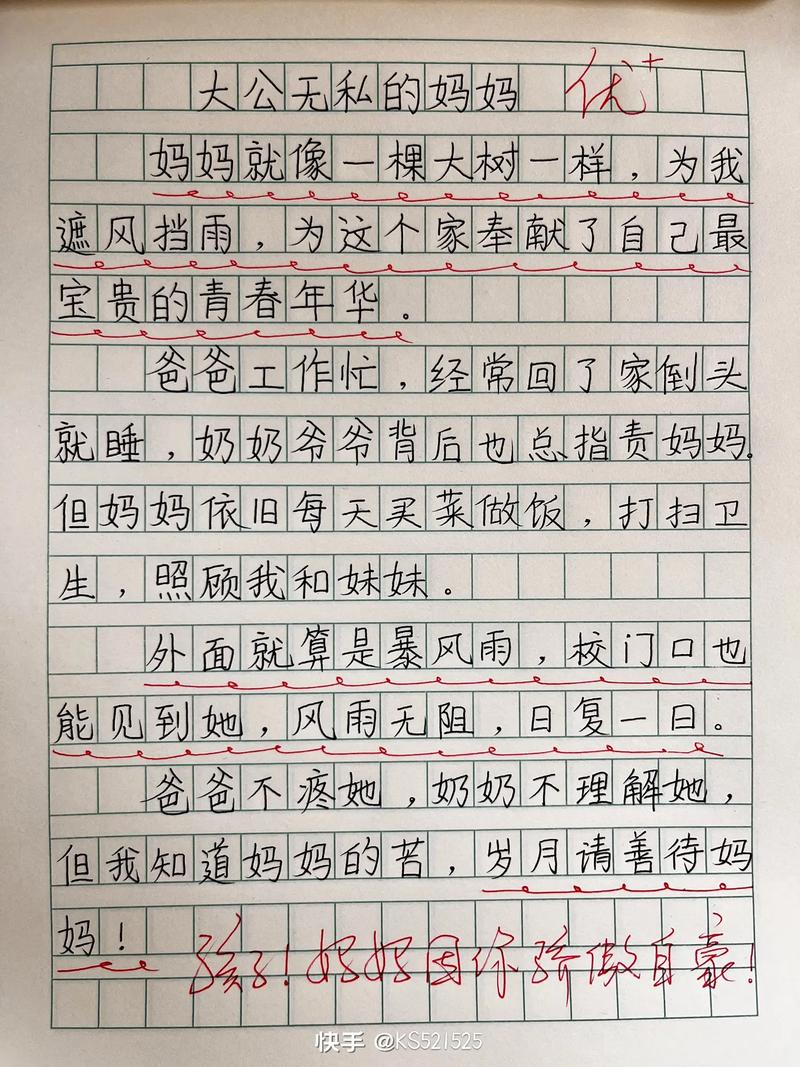 大公无私的妈妈 优+
妈妈就像一棵大树一样，为我
遮风挡雨，为这个家奉献了自己最
宝贵的青春年华。
爸爸工作忙，经常回了家倒头
就睡，奶奶爷爷背后也总指责妈妈。
但妈妈依旧每天买菜做饭，打扫卫
生，照顾我和妹妹。
外面就算是暴风雨，校门口也
能见到她，风雨无阻，日复一日。
爸爸不疼她，奶奶不理解她，
但我知道妈妈的苦，岁月请善待妈
妈！
孩子！妈妈因你骄傲自豪！
快手 @KS521525